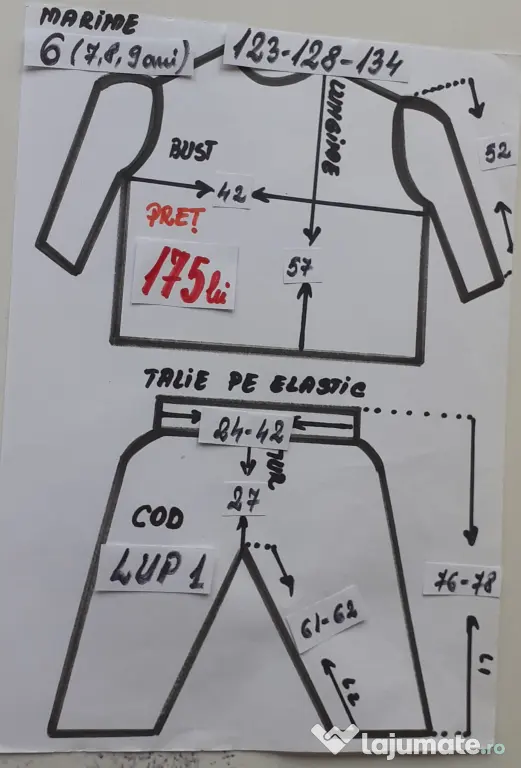 MARIME
6 (7,8,9 ani)
123-128-134
LUNGIME
52
BUST
42
PREȚ
175 lei
57
TALIE PE ELASTIC
24-42
TUR
27
COD
LUP 1
76-78
61-62
L1
L2
lajumate.ro